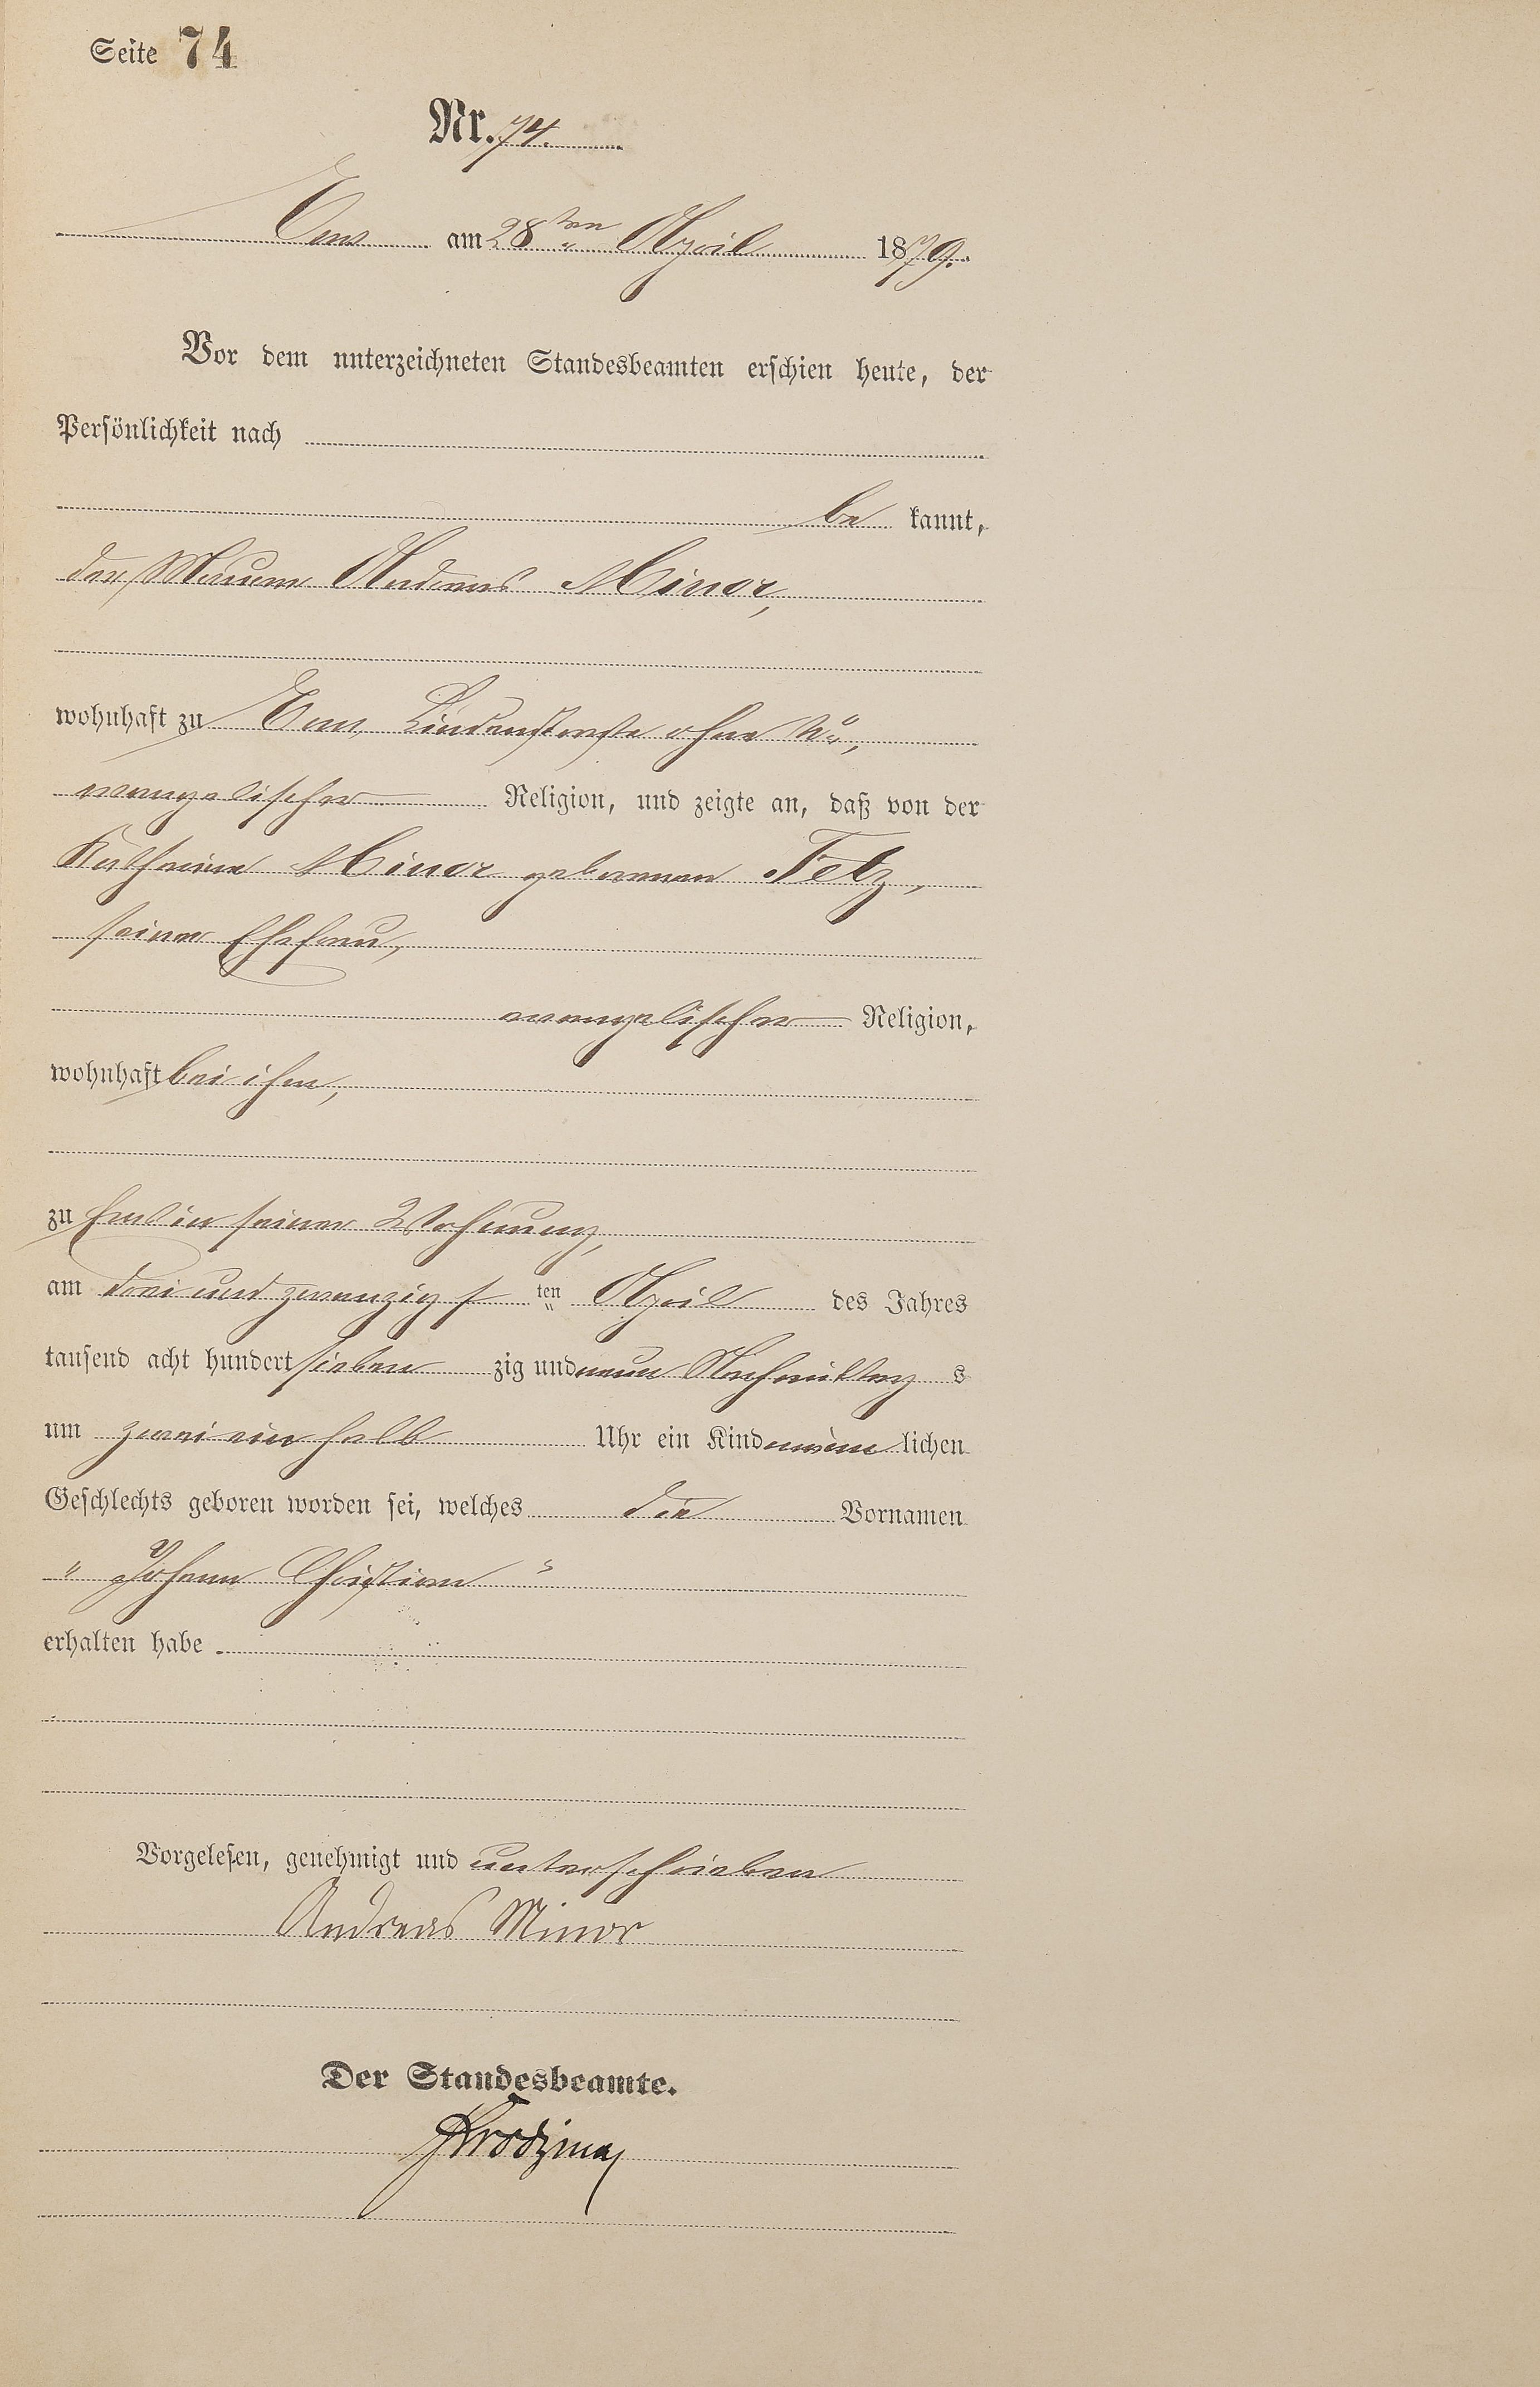 Seite 74
Nr. 74.
Ems am 28ten April 1879.
Vor dem unterzeichneten Standesbeamten erschien heute, der
Persönlichkeit nach
be kannt,
der Maurer Andreas Minor,
wohnhaft zu Ems, Lindenstraße ohne No,
evangelischer Religion, und zeigte an, daß von der
Katharina Minor geborenen Fetz,
seiner Ehefrau,
evangelischer Religion,
wohnhaft bei ihm,
zu Ems in seiner Wohnung,
am drei und zwanzigs ten April des Jahres
tausend acht hundert sieben zig und neun Nachmittag s
um zwei ein halb Uhr ein Kind männ lichen
Geschlechts geboren worden sei, welches die Vornamen
" Johann Christian "
erhalten habe.
Vorgelesen, genehmigt und unterschrieben
Andreas Minor
Der Standesbeamte.